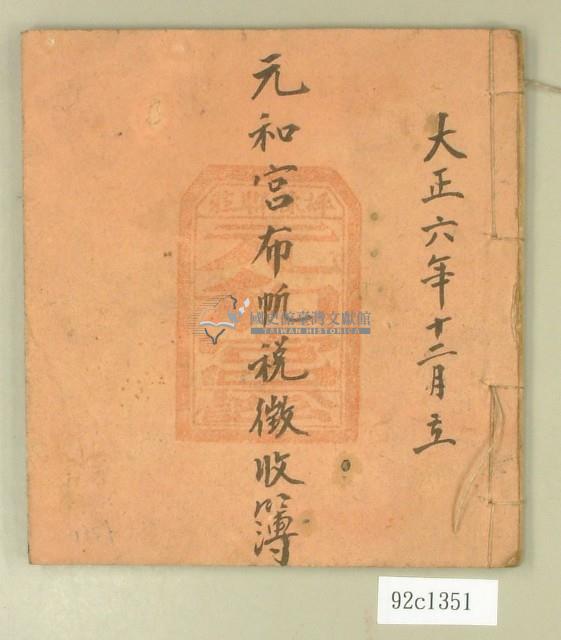 大正六年十二月立
元和宮布帆税徴收簿
國史館臺灣文獻館
TAIWAN HISTORICA
92c1351